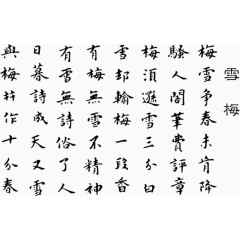 雪梅
梅雪争春未肯降
騷人閣筆費評章
梅湏遜雪三分白
雪却輸梅一段香
有梅無雪不精神
有雪無詩俗了人
日暮詩成天又雪
與梅并作十分春